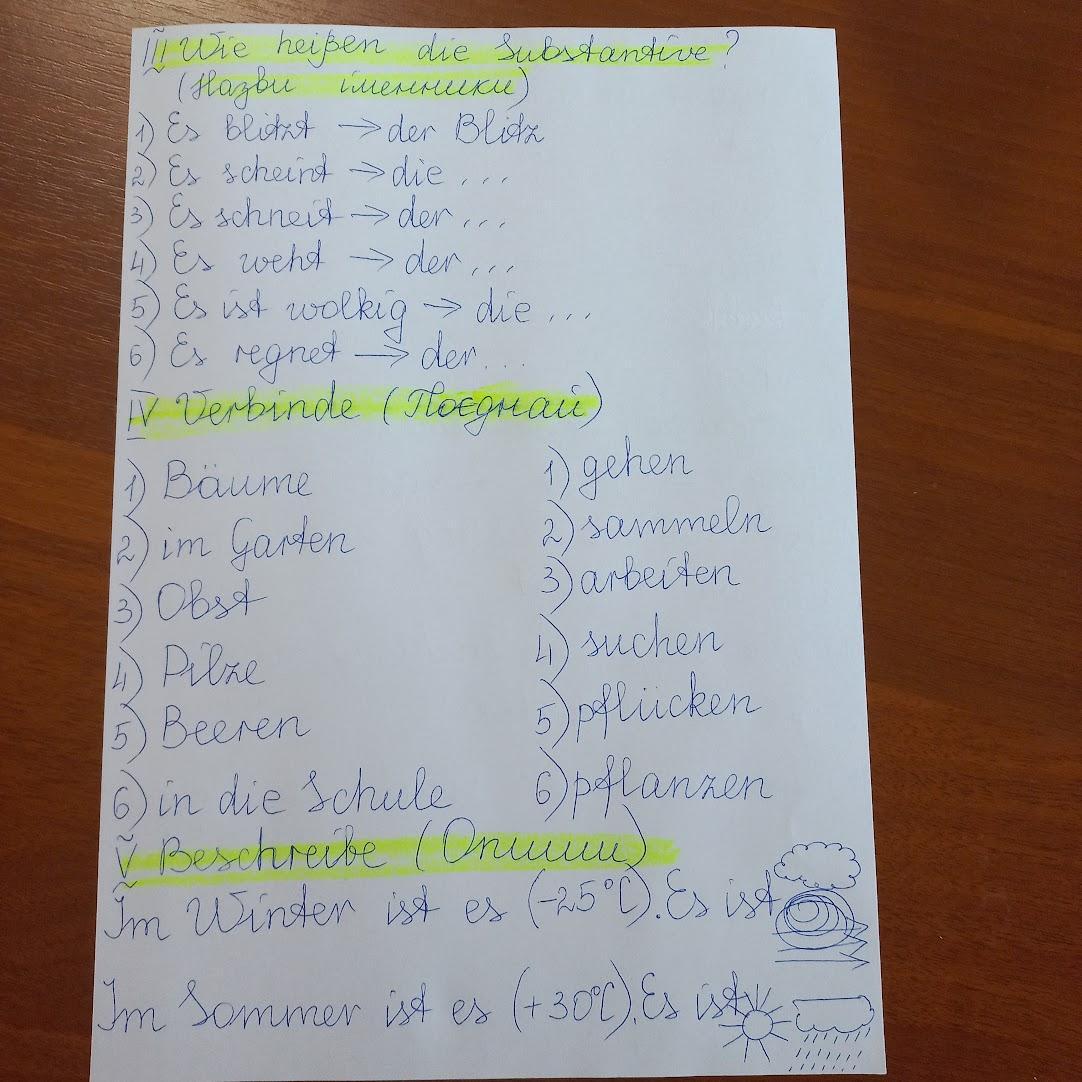 III Wie heißen die Substantive?
(Назви іменники)
1) Es blitzt → der Blitz
2) Es scheint → die ...
3) Es schneit → der ...
4) Es weht → der ...
5) Es ist wolkig → die ...
6) Es regnet → der ...
IV Verbinde (Поєднай)
1) Bäume
1) gehen
2) im Garten
2) sammeln
3) Obst
3) arbeiten
4) Pilze
4) suchen
5) Beeren
5) pflücken
6) in die Schule
6) pflanzen
V Beschreibe (Опиши)
Im Winter ist es (-25°C). Es ist
Im Sommer ist es (+30°C). Es ist